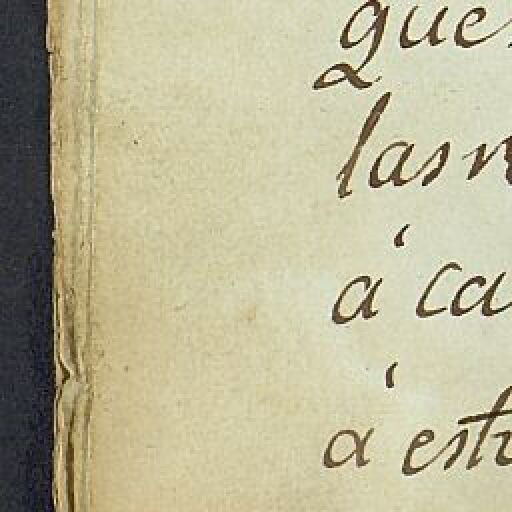 que
las
á ca
á est